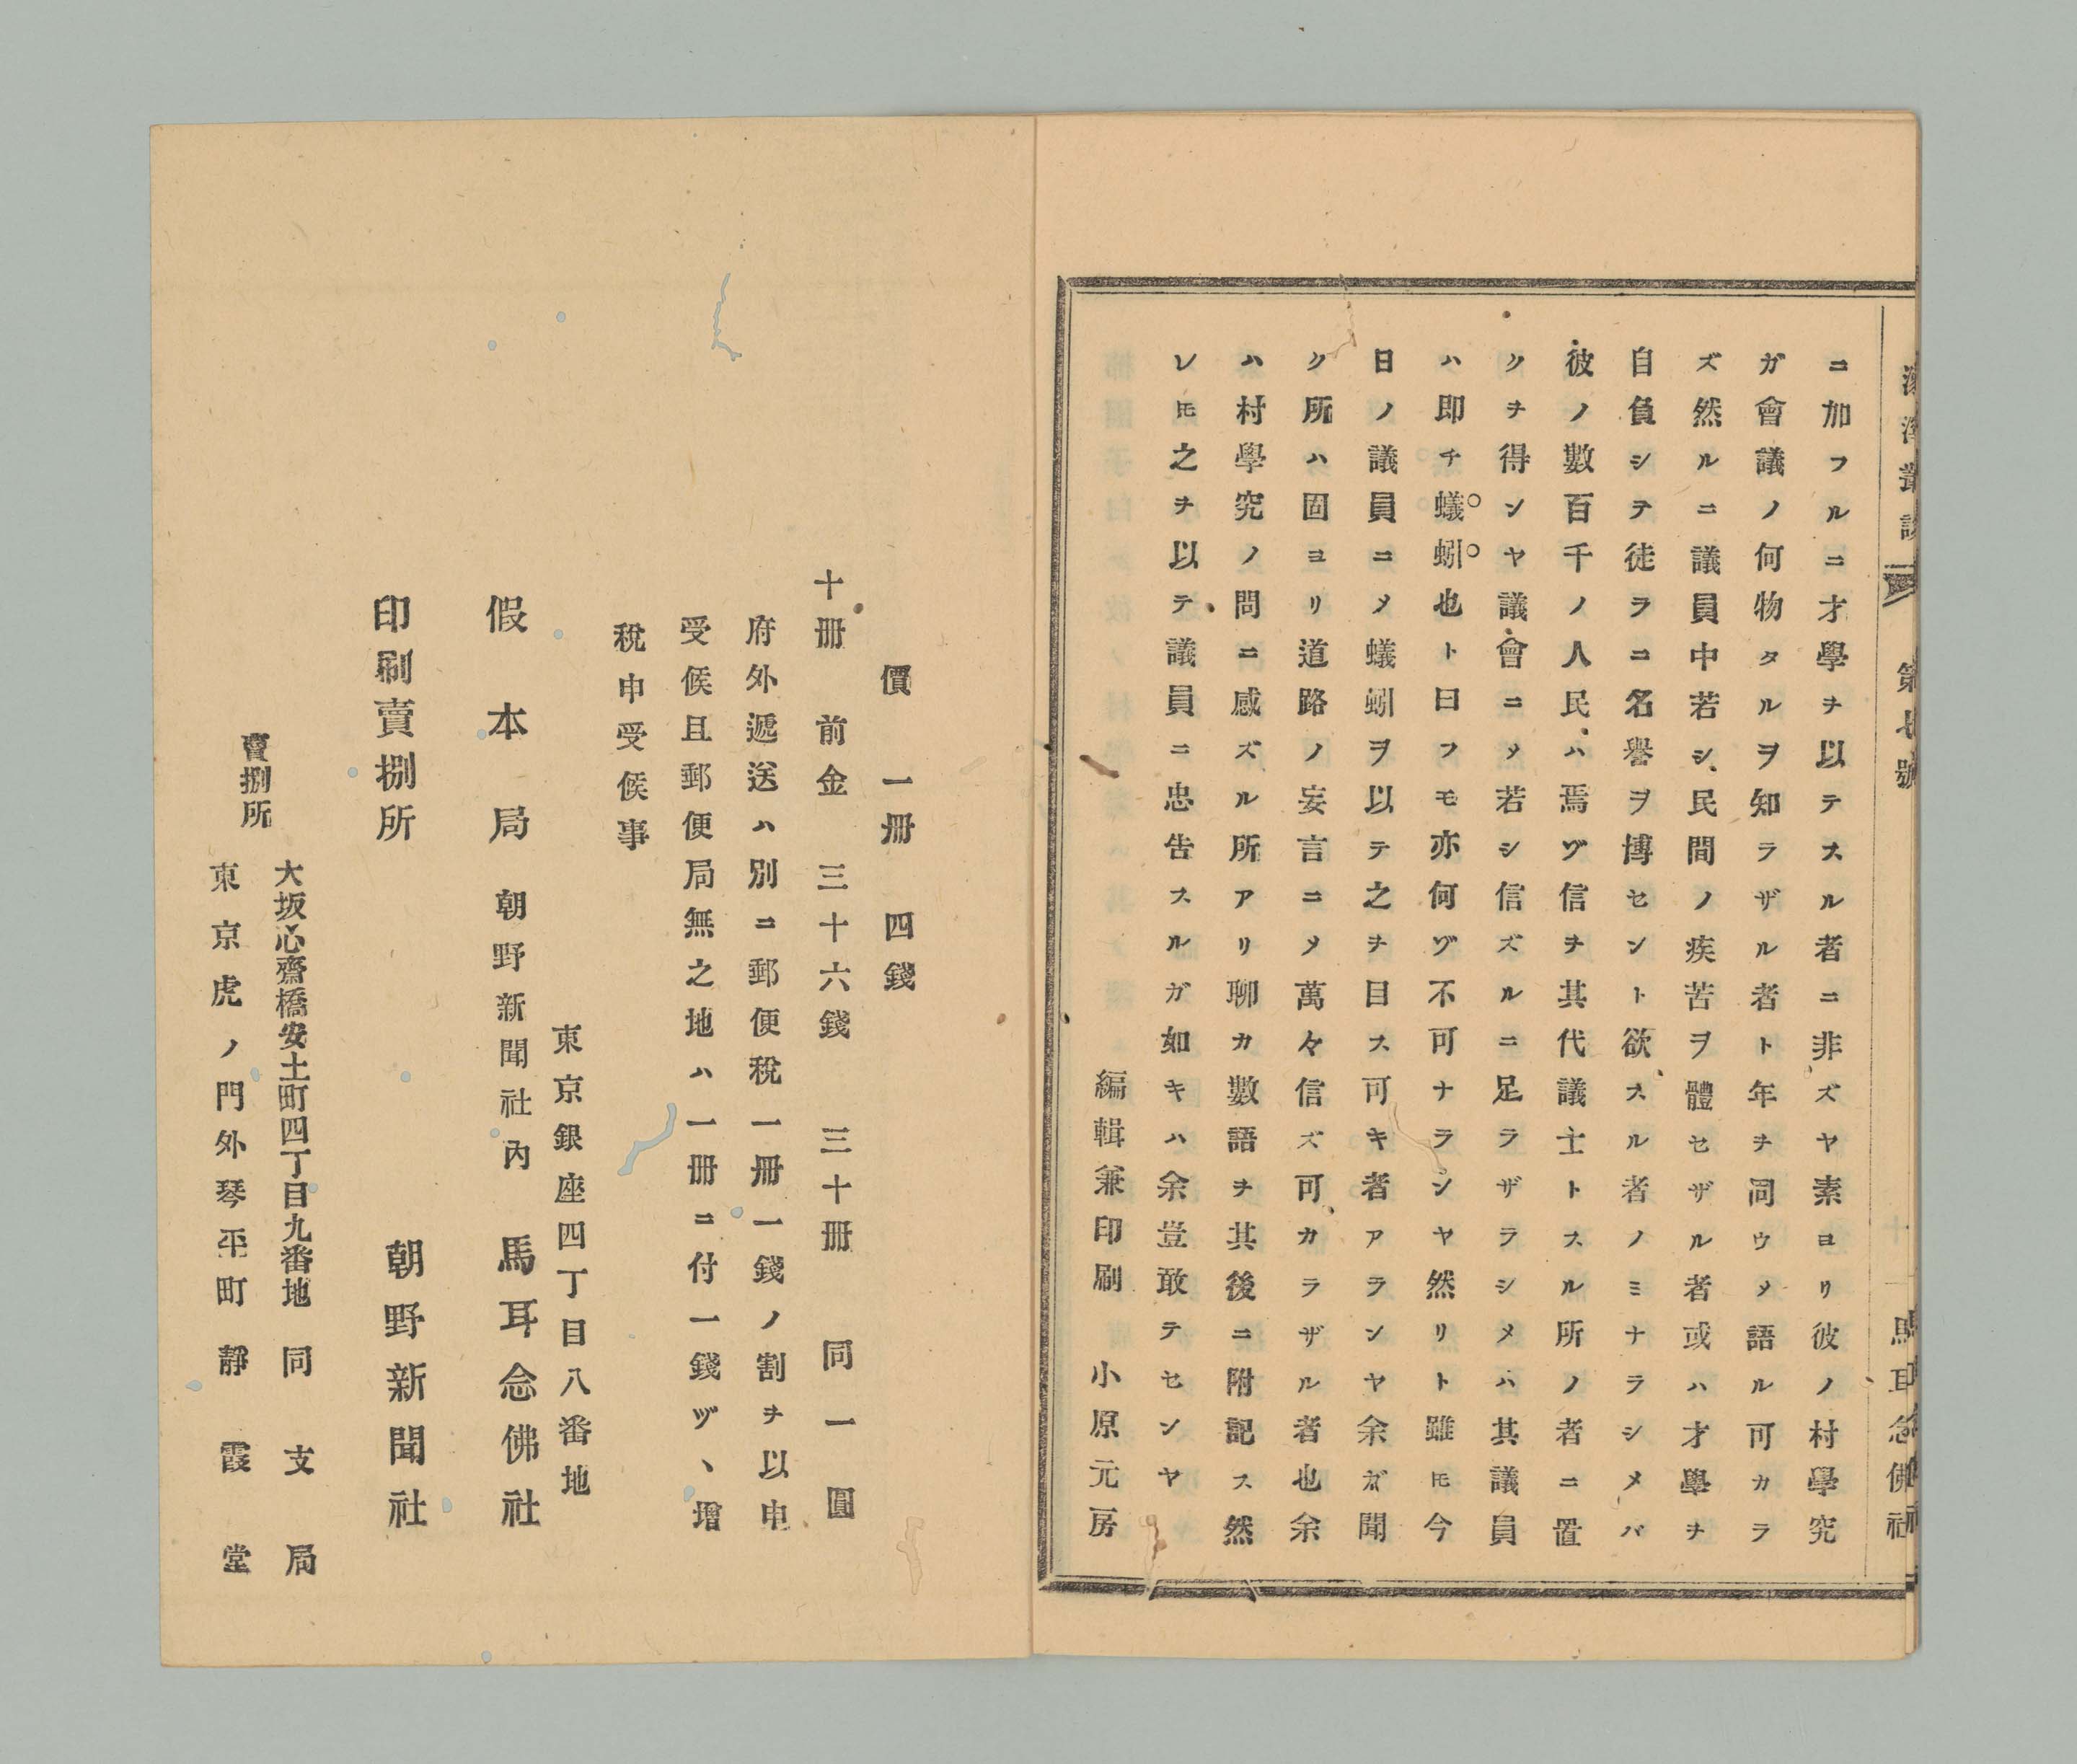 第七號
馬耳念佛社
ニ加フルニ才學ヲ以テスル者ニ非ズヤ素ヨリ彼ノ村學究
ガ會議ノ何物タルヲ知ラザル者ト年チ同ウメ語ル可カラ
ズ然ルニ議員中若シ民間ノ疾苦ヲ體セザル者或ハ才學チ
自負シテ徒ラニ名譽ヲ博セント欲スル者ノミナラシメバ
彼ノ數百千ノ人民ハ焉ヅ信ヲ其代議士トスル所ノ者ニ置
クヲ得ンヤ議會ニメ若シ信ズルニ足ラザラシメハ其議員
ハ即チ蟻蚓也ト曰フモ亦何ヅ不可ナランヤ然リト雖𪜈今
日ノ議員ニメ蟻蚓ヲ以テ之ヲ目ス可キ者アランヤ余ガ聞
ク所ハ固ヨリ道路ノ妄言ニメ萬々信ズ可カラザル者也余
ハ村學究ノ問ニ感ズル所アリ聊カ數語ヲ其後ニ附記ス然
レ𪜈之ヲ以テ議員ニ忠告スルガ如キハ余豈敢テセンヤ
編輯兼印刷　小原元房
價　一冊　四錢
十冊　前金　三十六錢　三十冊　同一圓
府外遞送ハ別ニ郵便税一冊一錢ノ割ヲ以申
受候且郵便局無之地ハ一冊ニ付一錢ヅヽ増
税申受候事
東京銀座四丁目八番地
假本局　朝野新聞社内　馬耳念佛社
印刷賣捌所　朝野新聞社
大坂心齋橋安土町四丁目九番地　同支局
賣捌所
東京虎ノ門外琴平町　靜霞堂